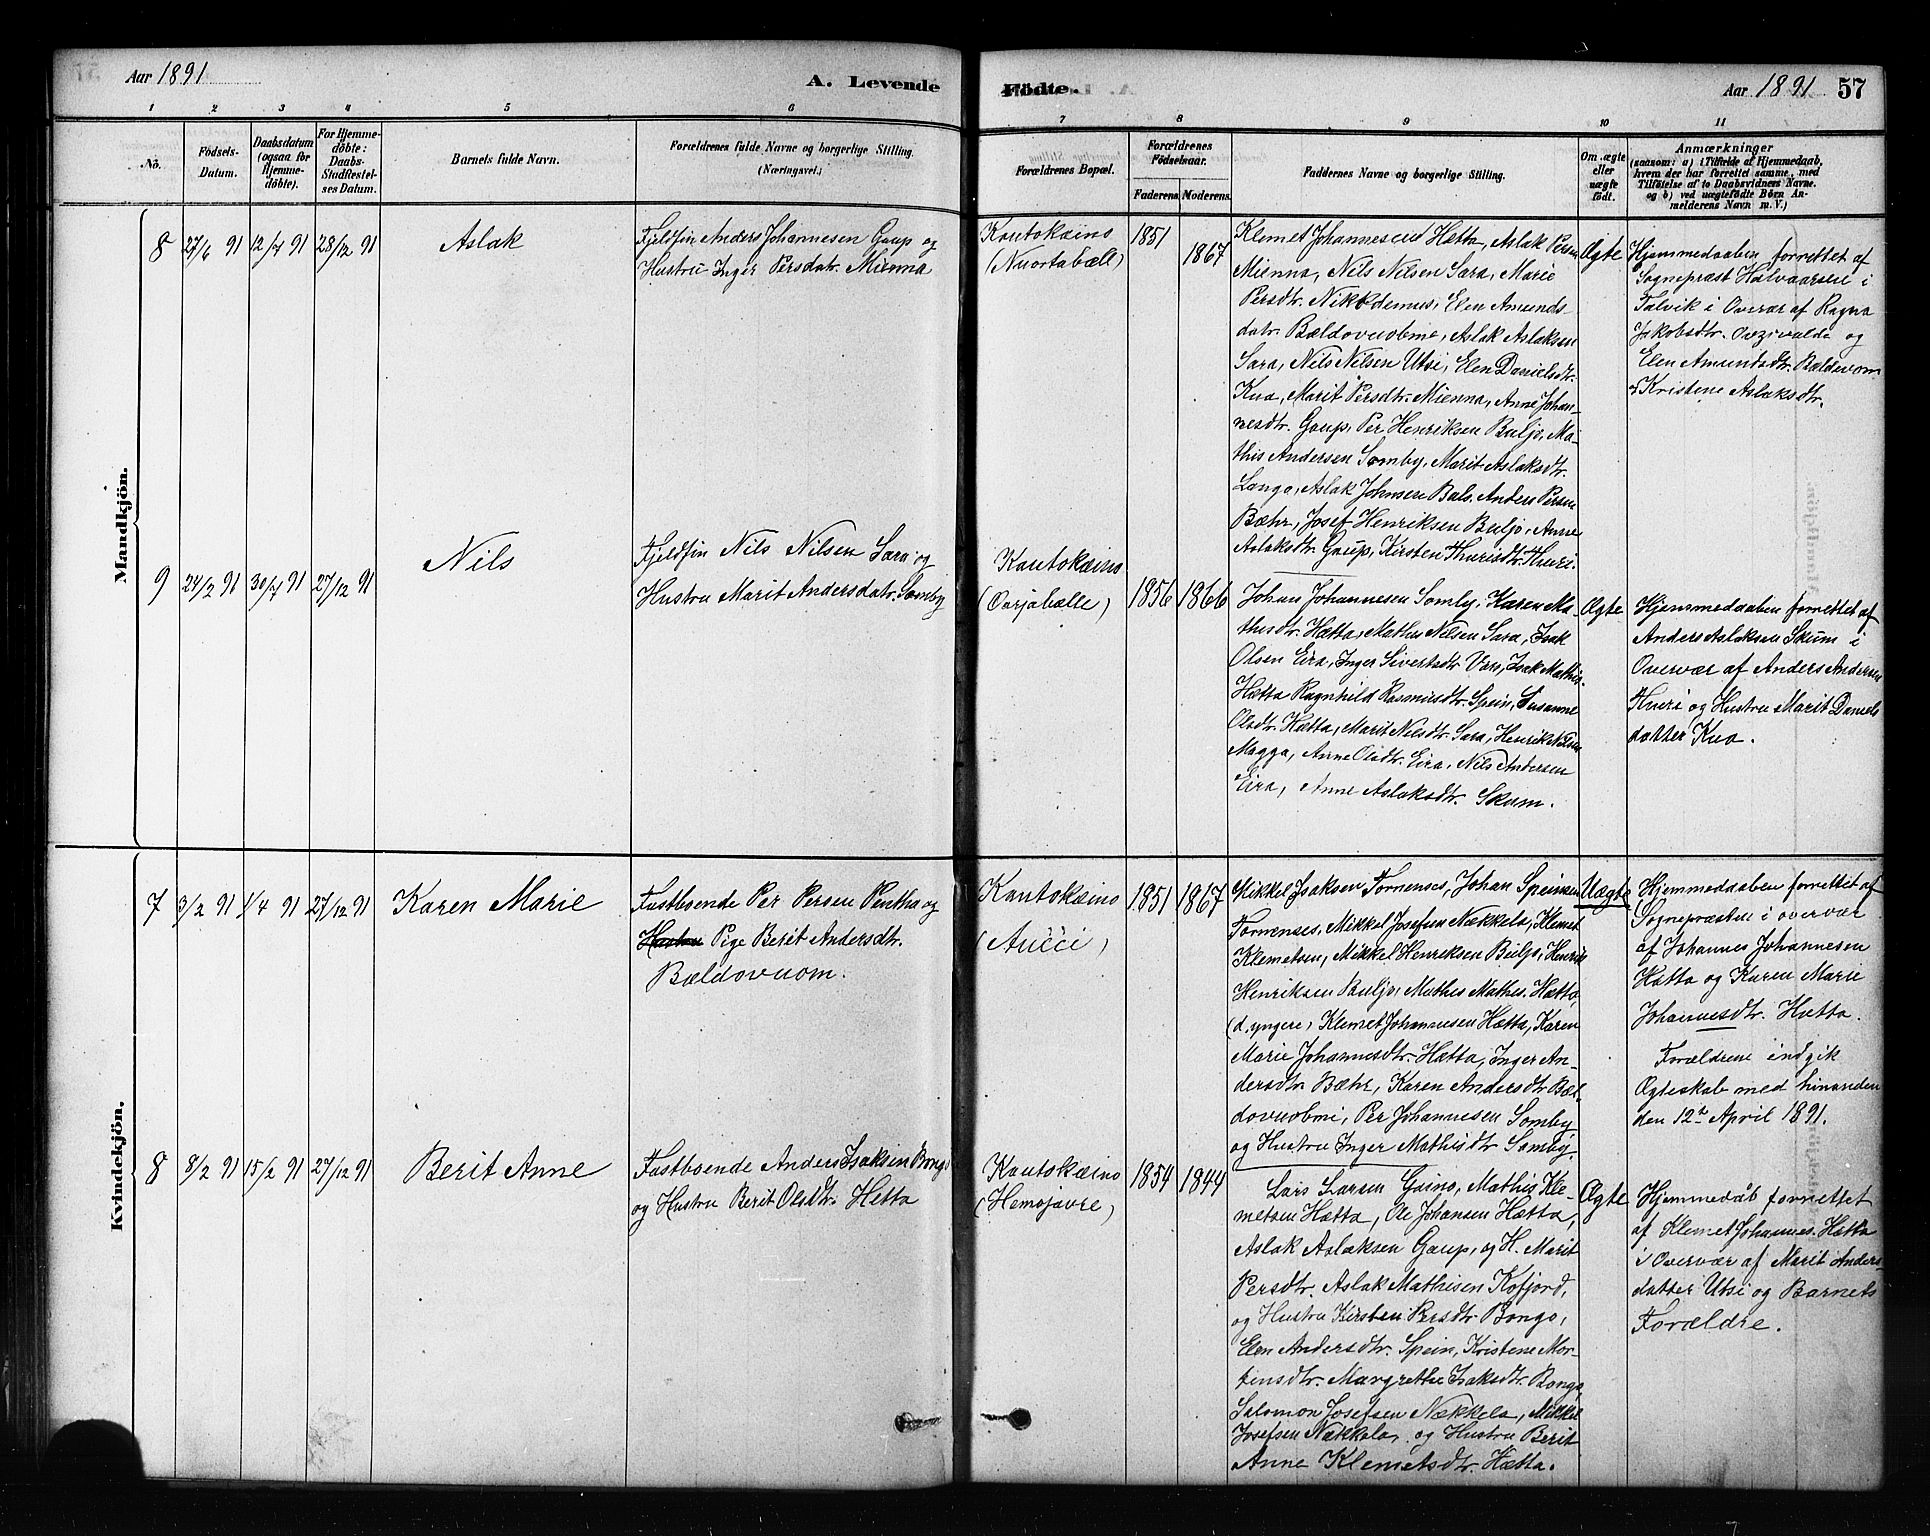 Aar 1891
A. Levende
Födte.
Aar 1891
57
1 2 3 4 5 6 7 8 9 10 11
No.
Födsels-
Datum.
Daabsdatum
(ogsaa for
Hjemme-
döbte).
For Hjemme-
döbte:
Daabs-
Stadfæstel-
ses Datum.
Barnets fulde Navn.
Forældrenes fulde Navne og borgerlige Stilling.
(Næringsvei.)
Forældrenes Bopæl.
Forældrenes
Födselsaar.
Faderens.
Moderens.
Faddernes Navne og borgerlige Stilling.
Om ægte
eller
uægte
födt.
Anmærkninger
(saasom: a) i Tilfælde af Hjemmedaab,
hvem der har forrettet samme, med
Tilföielse af to Daabsvidners Navne.
og b) ved uægtefödte Börn An-
melderens Navn m. V.)
Mandkjön.
8
27/6 91
12/7 91
28/12 91
Aslak
Fjeldfin Anders Johannesen Gaup og
Hustru Inger Persdatr. Mienna
Kautokeino
(Nuortabæll)
1851
1867
Klemet Johannesen Hætta, Aslak Persen
Mienna, Nils Nilsen Sara, Marie
Persdtr. Nikkodemus, Elen Amunds-
datr. Bældovuobme, Aslak Aslaksen
Sara, Nils Nilsen Utsi, Elen Danielsdtr.
Kua, Marit Persdtr. Mienna, Anne Johan-
nesdtr. Gaup, Per Henriksen Buljo, Ma-
this Andersen Somby, Marit Aslaksdtr.
Lango, Aslak Johnsen Bals. Anders Persen
Bæhr, Josef Henriksen Buljo, Anne
Aslaksdtr. Gaup, Kirsten Thurisdtr. Thuri.
Ægte
Hjemmedaaben forrettet af
Sognepræst Halvaarsen i
Talvik i Overvær af Ragna
Jakobsdtr. Ovzivalda og
Elen Amundsdtr. Bældovom
Kristene Aslaksdtr.
9
24/2 91
30/7 91
27/12 91
Nils
Fjeldfin Nils Nilsen Sara og
Hustru Marit Andersdatr. Somby
Kautokæino
(Oarjabælle)
1856
1866
Johan Johannesen Somby, Karen Ma-
thisdtr. Hætta, Mathis Nilsen Sara, Isak
Olsen Eira, Inger Sivertsdtr. Vars, Isak Mathis.
Hætta Ragnhild Rasmusdtr. Spein, Susanne
Olsdtr. Hætta, Marit Nilsdtr. Sara, Henrik Nilsen
Magga, Anne Olsdtr. Eira, Nils Andersen
Eira, Anne Aslaksdtr. Skum.
Ægte
Hjemmedaaben forrettet af
Anders Aslaksen Skum i
Overvær af Anders Andersen
Thuri og Hustru Marit Daniels
datter Kua.
Kvindekjön.
7
3/2 91
1/4 91
27/12 91
Karen Marie
Fastboende Per Persen Pentha og
Hustru Pige Berit Andersdtr.
Bældovuom.
Kautokæino
(Aucci)
1851
1867
Mikkel Isaksen Tornenses, Johan Speinsen
Tornenses, Mikkel Josefsen Nækkela, Klemet
Klemetsen, Mikkel Henriksen Buljo, Henrik
Henriksen Buljo, Mathis Mathis. Hætta,
(d. yngere, Klemet Johannesen Hætta, Karen
Marie Johannesdtr. Hætta, Inger An-
dersdtr. Bæhr, Karen Andersdtr. Bæl-
dovuobmi, Per Johannesen Somby
og Hustru Inger Mathisdtr Somby.
Uægte
Hjemmedaaben forrettet af
Sognepræsten i overvær
af Johannes Johannesen
Hætta og Karen Marie
Johannesdtr. Hætta.
Forældrene indgik
Ægteskab med hinanden
den 12te April 1891.
8
8/2 91
15/2 91
27/12 91
Berit Anne
Fastboende Anders Isaksen Bongo
og Hustru Berit Olsdtr. Hetta
Kautokæino
(Hemojavre)
1854
1844
Lars Larsen Gaino, Mathis Kle-
metsen Hætta, Ole Johansen Hætta,
Aslak Aslaksen Gaup, og H. Marit
Persdtr. Aslak Mathisen Kofjord,
og Hustru Kirsten Persdtr Bongo,
Elen Andersdtr. Spein, Kristene Mor-
tensdtr. Margrethe Isaksdtr. Bongo
Salomon Josefsen Nækkela, Mikkel
Josefsen Nækkela, og Hustru Berit
Anne Klemetsdtr. Hætta.
Ægte
Hjemmedåb forrettet
af Klemet Johannes. Hætta
i Overvær af Marit Anders-
datter Utsi og Barnets
Forældre.